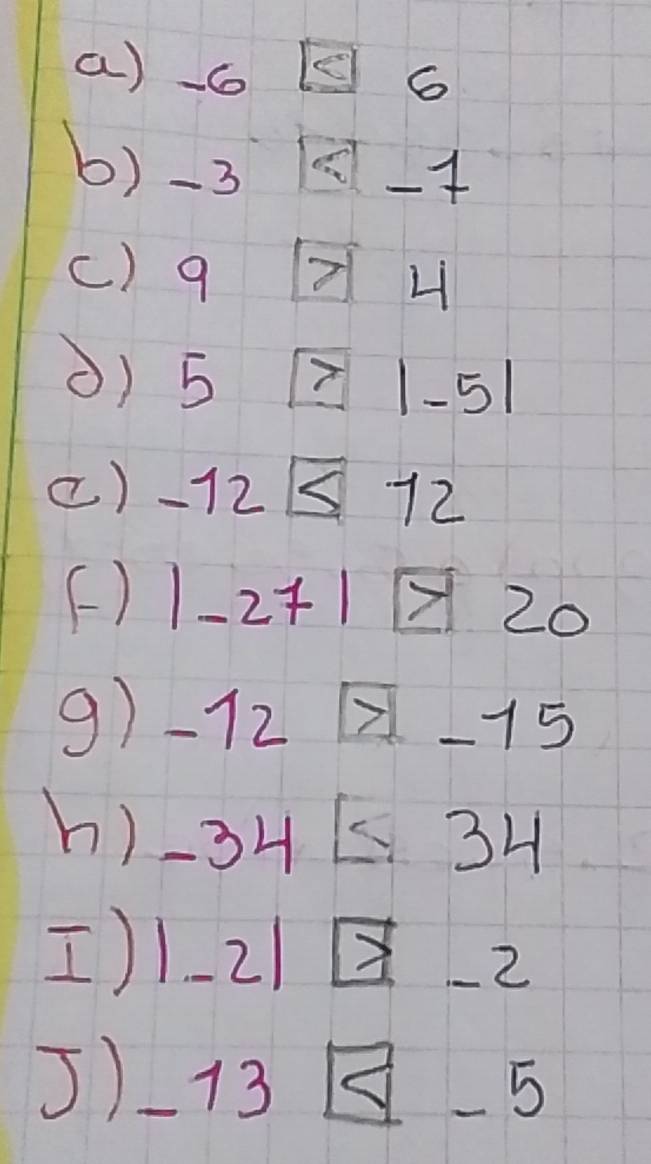 a) -6 < 6
b) -3 < -1
c) 9 > 4
d) 5 > |-5|
e) -12 < 12
f) |-27| > 20
g) -12 > -15
h) -34 < 34
I) |-2| > -2
J) -13 < -5